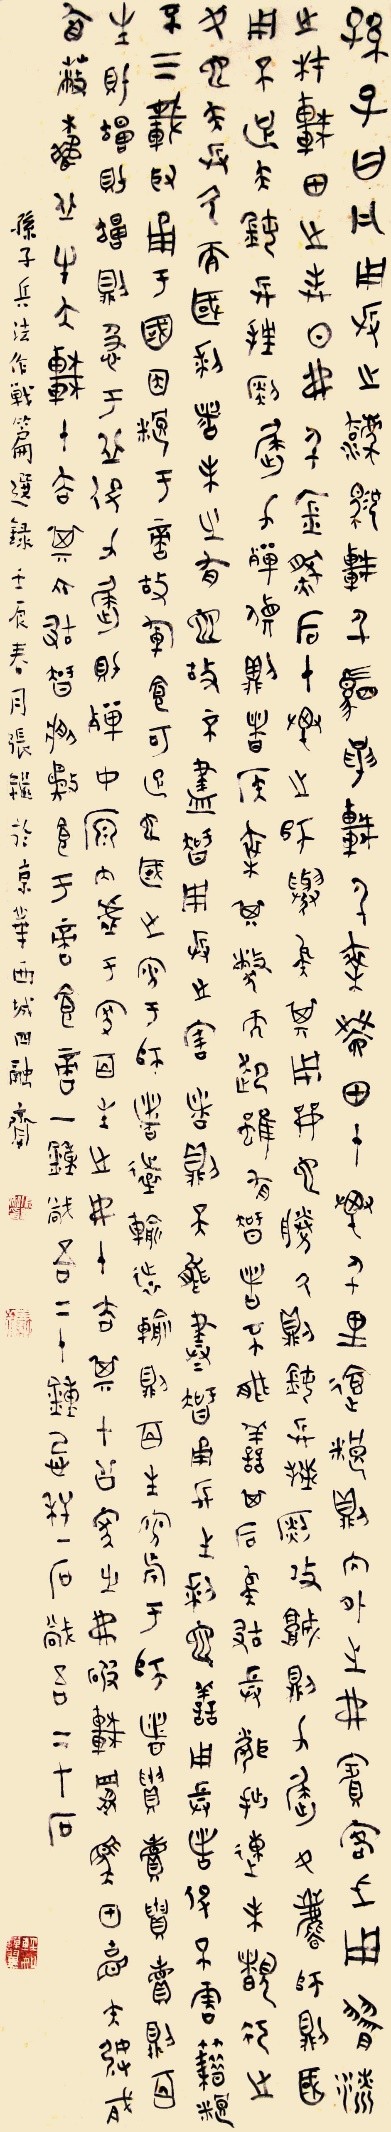 孫子曰凡用兵之法馳車千駟革車千乘帶甲十萬千里饋糧則內外之費賓客之用膠漆
之材車甲之奉日費千金然后十萬之師舉矣其用戰也勝久則鈍兵挫銳攻城則力屈久暴師則國
用不足夫鈍兵挫銳屈力殫貨則諸侯乘其弊而起雖有智者不能善其后矣故兵聞拙速未睹巧之
久也夫兵久而國利者未之有也故不盡智用兵之害者則不能盡智用兵之利也善用兵者役不再籍糧
不三載取用于國因糧于敵故軍食可足也國之貧于師者遠輸遠輸則百生貧近于師者貴賣貴賣則百
生財竭財竭則急于丘役力屈財殫中原內虛于家百生之費十去其七公家之費破車罷馬甲冑矢弩戟
盾蔽櫓丘牛大車十去其六故智將務食于敵食敵一鍾當吾二十鍾秆一石當吾二十石
孫子兵法作戰篇選錄壬辰春月張繼於京華西城四融齋